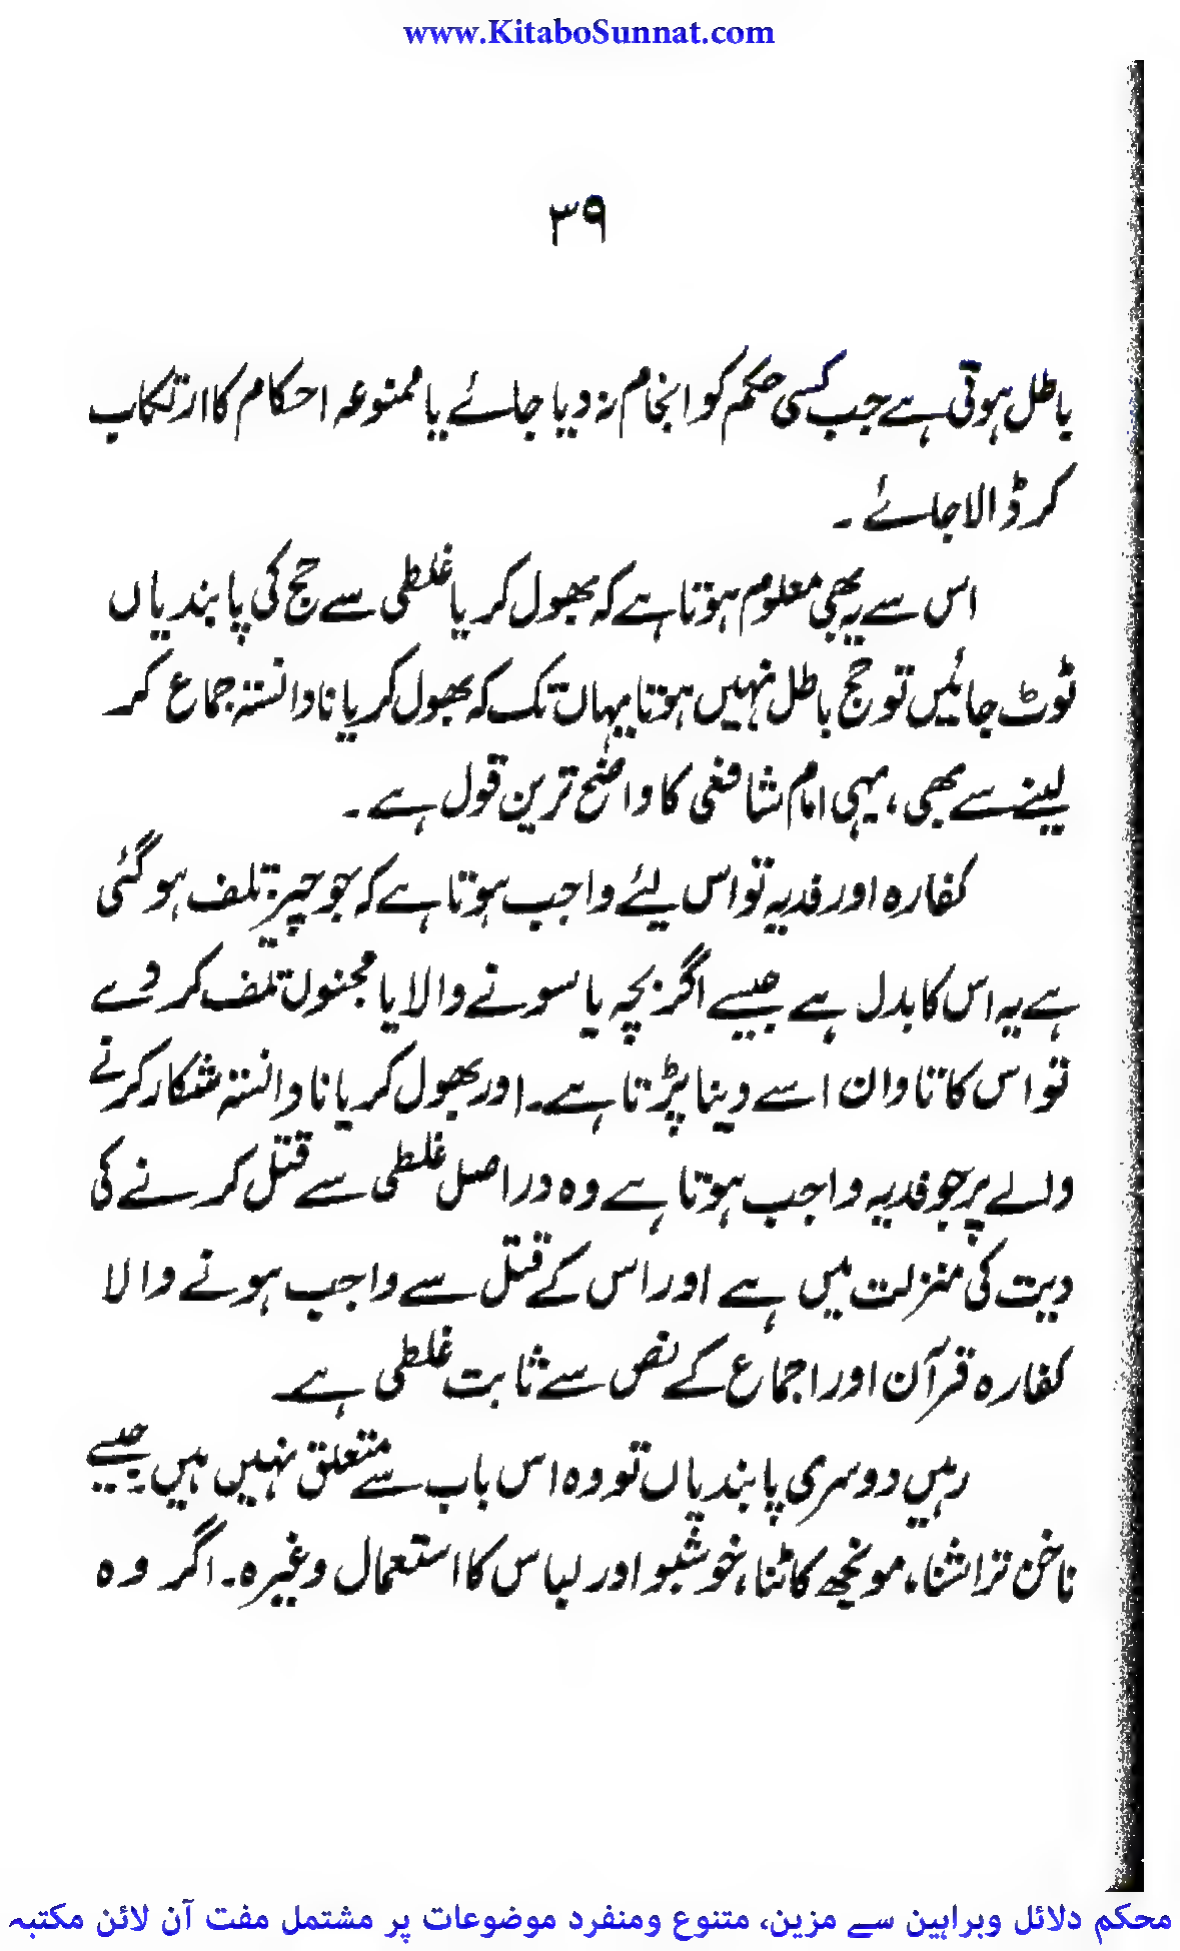 www.KitaboSunnat.com
۳۹
باطل ہوتی ہے جب کسی حکم کو انجام نہ دیا جائے یا ممنوعہ احکام کا ارتکاب
کر ڈالا جائے ۔
اس سے یہ بھی معلوم ہوتا ہے کہ بھول کر یا غلطی سے حج کی پابندیاں
ٹوٹ جائیں تو حج باطل نہیں ہوتا یہاں تک کہ بھول کر یا نادانستہ جماع کر
لینے سے بھی ، یہی امام شافعی کا واضح ترین قول ہے ۔
کفارہ اور فدیہ تو اس لئے واجب ہوتا ہے کہ جو چیز تلف ہو گئی
ہے یہ اس کا بدل ہے جیسے اگر بچہ یا سونے والا یا مجنون تلف کر دے
تو اس کا تاوان اسے دینا پڑتا ہے۔ اور بھول کر یا نادانستہ شکار کرنے
والے پر جو فدیہ واجب ہوتا ہے وہ دراصل غلطی سے قتل کرنے کی
دیت کی منزلت میں ہے اور اس کے قتل سے واجب ہونے والا
کفارہ قرآن اور اجماع کے نص سے ثابت غلطی ہے۔
رہیں دوسری پابندیاں تو وہ اس باب سے متعلق نہیں ہیں جیسے
ناخن تراشنا، مونچھ کاٹنا، خوشبو اور لباس کا استعمال وغیرہ۔ اگر وہ
محکم دلائل وبراہین سے مزین، متنوع ومنفرد موضوعات پر مشتمل مفت آن لائن مکتبہ